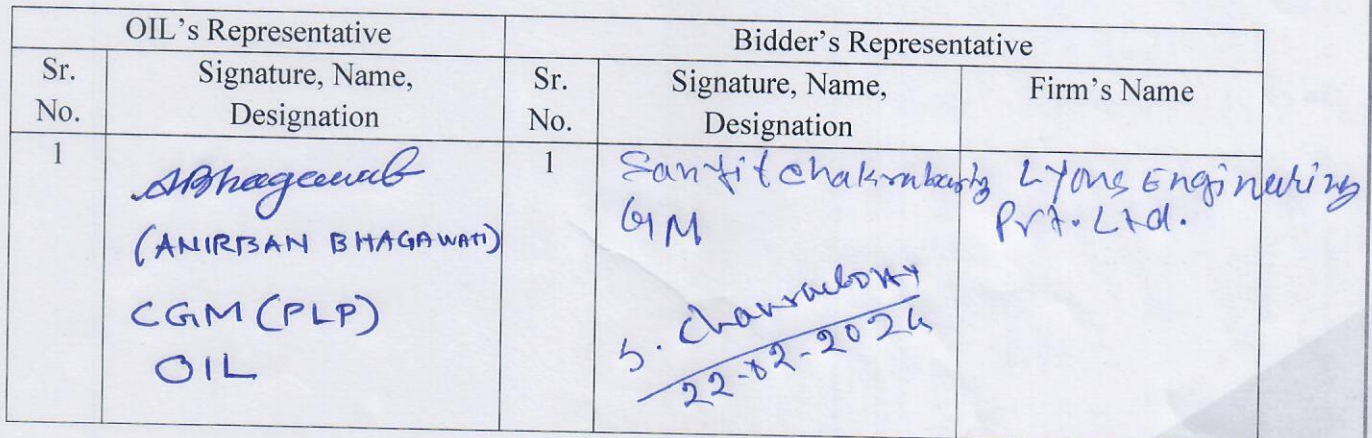 OIL's Representative
Bidder's Representative
Sr. No.
Signature, Name, Designation
Sr. No.
Signature, Name, Designation
Firm's Name
1
ABhagawati
(ANIRBAN BHAGAWATI)
CGM (PLP)
OIL
1
Sanjit Chakraborty
GM
S. Chakraborty
22-02-2024
Lyons Engineering
Pvt. Ltd.